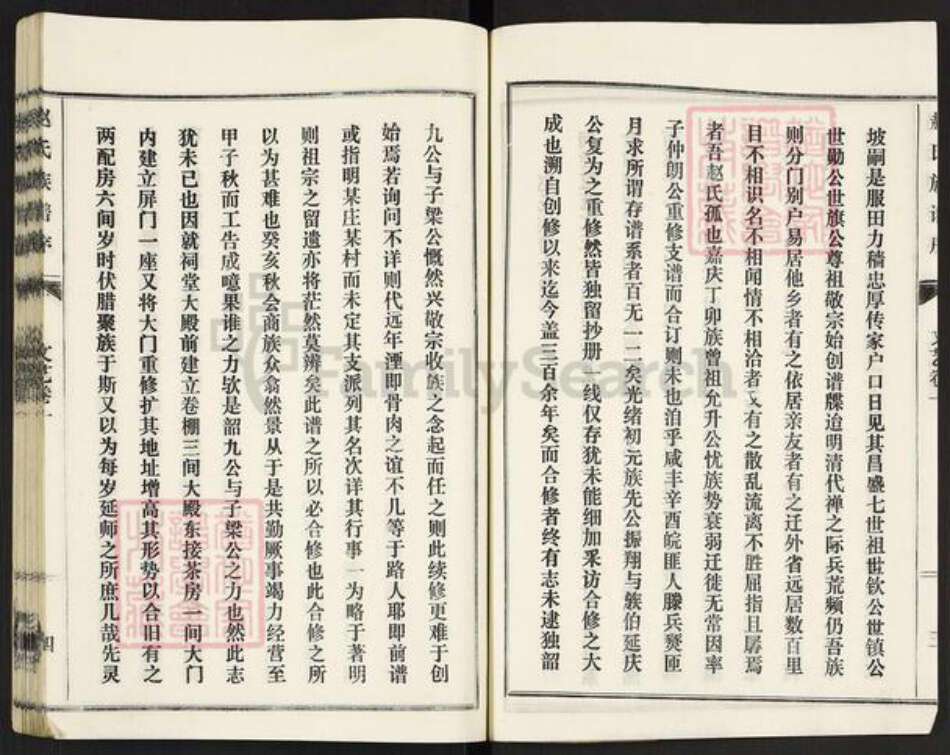 坡嗣是服田力穑忠厚传家户口日见其昌盛七世祖世钦公世镇公
世勋公世旗公尊祖敬宗始创谱牒迨明清代禅之际兵荒频仍吾族
则分门别户易居他乡者有之依居亲友者有之迁外省远居数百里
目不相识名不相闻情不相洽者又有之散乱流离不胜屈指且孱焉
者吾赵氏孤也嘉庆丁卯族曾祖允升公忧族势衰弱迁徙无常因率
子仲朗公重修支谱而合订则未也洎乎咸丰辛酉皖匪人滕兵燹匝
月求所谓存谱系者百无一二矣光绪初元族先公振翔与族伯延庆
公复为之重修然皆独留抄册一线仅存犹未能细加采访合修之大
成也溯自创修以来迄今盖三百余年矣而合修者终有志未逮独韶
赵氏族谱序
四
九公与子梁公慨然兴敬宗收族之念起而任之则此续修更难于创
始焉若询问不详则代远年湮即骨肉之谊不几等于路人耶即前谱
或指明某庄某村而未定其支派列其名次详其行事一为略于著明
则祖宗之留遗亦将茫然莫辨矣此谱之所以必合修也此合修之所
以为甚难也癸亥秋会商族众翕然景从于是共勤厥事竭力经营至
甲子秋而工告成噫果谁之力欤是韶九公与子梁公之力也然此志
犹未已也因就祠堂大殿前建立卷棚三间大殿东接茶房一间大门
内建立屏门一座又将大门重修扩其地址增高其形势以合旧有之
两配房六间岁时伏腊聚族于斯又以为每岁延师之所庶几哉先灵
FamilySearch